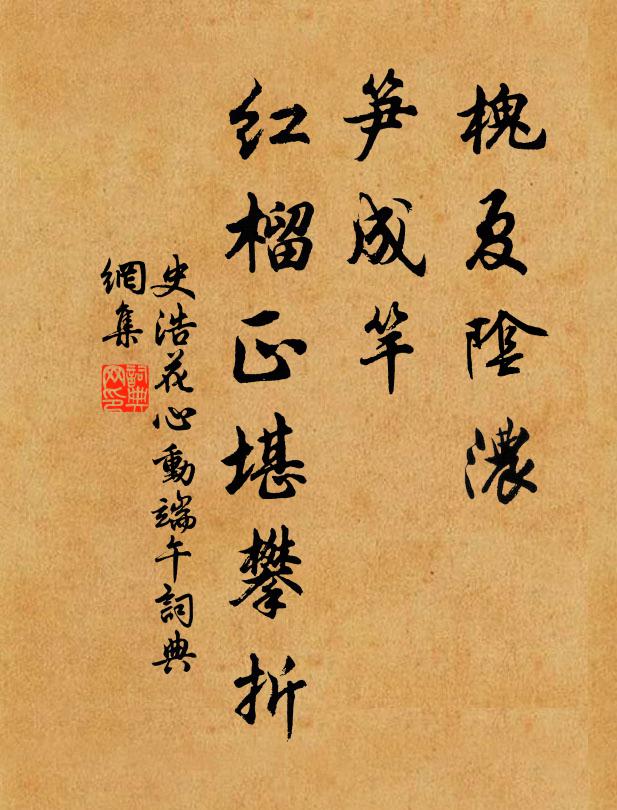 槐夏陰濃
笋成竿
红榴正堪攀折
史浩花心動端午詞典
網集
詞典
网印